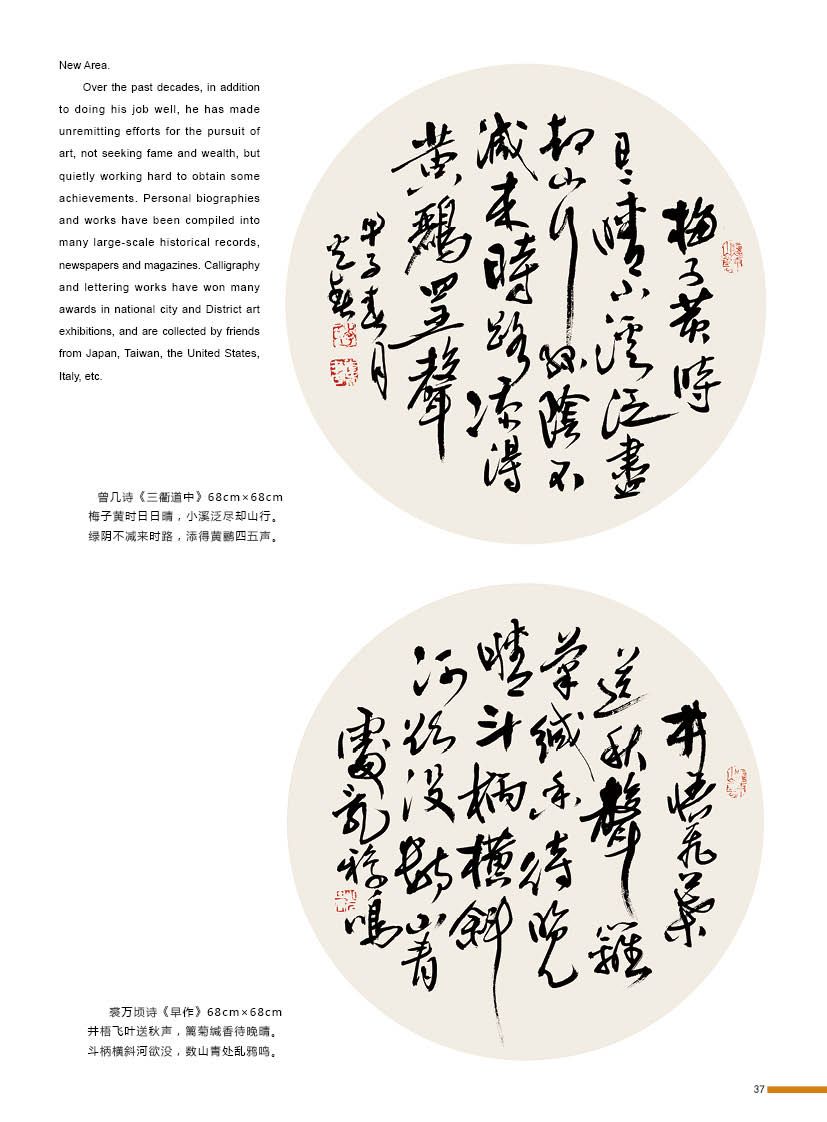 New Area.
Over the past decades, in addition
to doing his job well, he has made
unremitting efforts for the pursuit of
art, not seeking fame and wealth, but
quietly working hard to obtain some
achievements. Personal biographies
and works have been compiled into
many large-scale historical records,
newspapers and magazines. Calligraphy
and lettering works have won many
awards in national city and District art
exhibitions, and are collected by friends
from Japan, Taiwan, the United States,
Italy, etc.
梅子黄時
日〻晴小溪泛盡
却山行緑陰不
减来時路添得
黄鸝四五聲
春月
曾几诗《三衢道中》68cm×68cm
梅子黄时日日晴，小溪泛尽却山行。
绿阴不减来时路，添得黄鹂四五声。
井梧飛葉
送秋聲籬
菊緘香待晚
晴斗柄横斜
河欲没數山青
處亂鴉鳴
裘万顷诗《早作》68cm×68cm
井梧飞叶送秋声，篱菊缄香待晚晴。
斗柄横斜河欲没，数山青处乱鸦鸣。
37